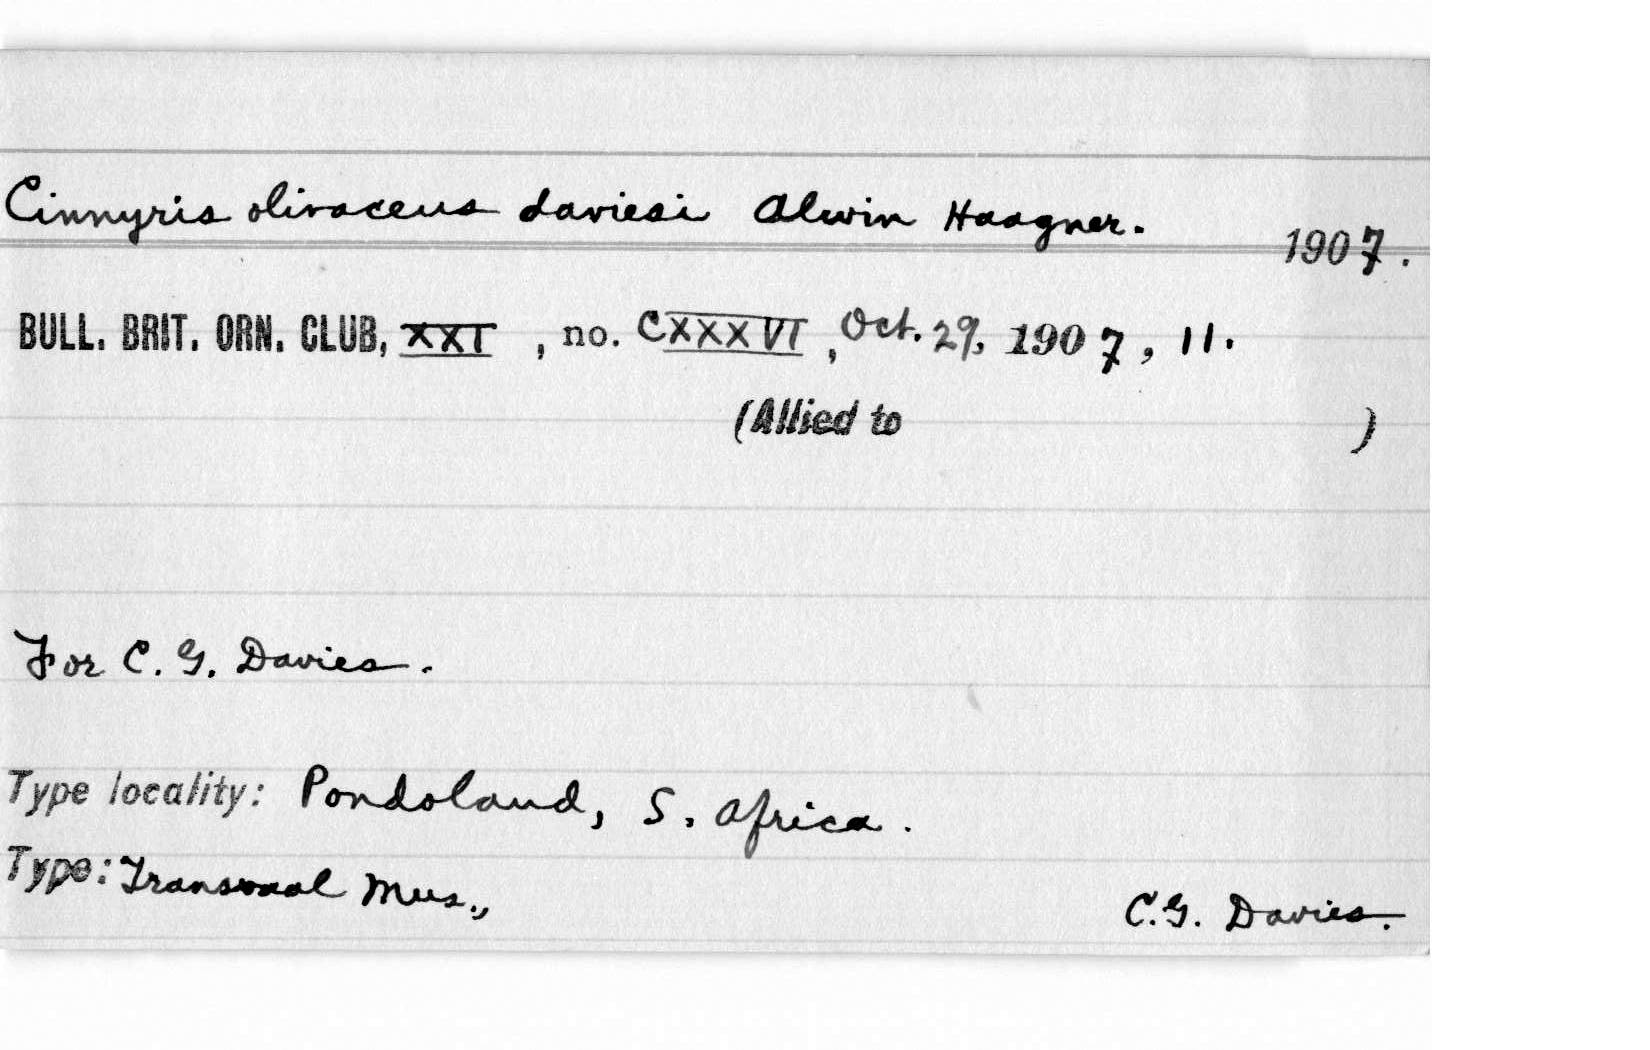 Cinnyris olivaceus daviesi Alwin Haagner.
1907.
BULL. BRIT. ORN. CLUB, XXI , no. CXXXVI , Oct. 29, 1907, 11.
(Allied to )
For C. G. Davies.
Type locality: Pondoland, S. Africa.
Type: Transvaal Mus.,
C.G. Davies.